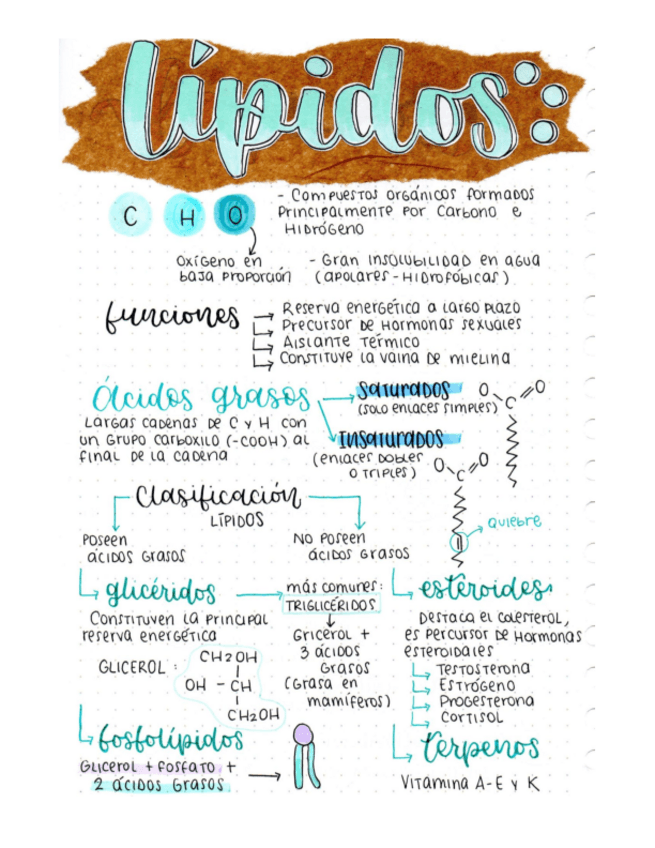 lípidos
C H O
- Compuestos orgánicos formados
principalmente por carbono e
hidrógeno
Oxígeno en
baja proporción
- Gran insolubilidad en agua
(apolares - hidrofóbicas)
funciones
→ Reserva energética a largo plazo
→ Precursor de hormonas sexuales
→ Aislante térmico
→ Constituye la vaina de mielina
Ácidos grasos
Largas cadenas de C y H con
un grupo carboxilo (-COOH) al
final de la cadena
Saturados
(solo enlaces simples)
O C O
Insaturados
(enlaces dobles
o triples)
O C O
quiebre
Clasificación
LÍPIDOS
Poseen
ácidos grasos
No poseen
ácidos grasos
glicéridos
Constituyen la principal
reserva energética
GLICEROL:
CH2OH
OH - CH
CH2OH
más comunes:
TRIGLICÉRIDOS
Gricerol +
3 ácidos
grasos
(grasa en
mamíferos)
esteroides
Destaca el colesterol,
es percursor de hormonas
esteroidales
Testosterona
Estrógeno
Progesterona
Cortisol
fosfolípidos
Glicerol + fosfato +
2 ácidos grasos
terpenos
Vitamina A-E y K